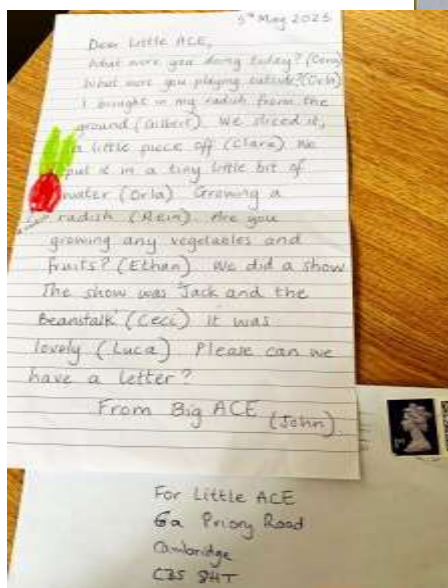 5th May 2025
Dear Little ACE,
What were you doing today? (Cora)
What were you playing outside? (Orla)
I brought in my radish from the
ground (Gilbert). We sliced it,
a little piece off (Clara) We
put it in a tiny little bit of
water (Orla). Growing a
radish (Rein). Are you
growing any vegetables and
fruits? (Ethan). We did a show
The show was 'Jack and the
Beanstalk' (Ceci) it was
lovely (Luca) Please can we
have a letter?
From Big ACE (John).
1st
For Little ACE
6a Priory Road
Cambridge
CB5 8HT